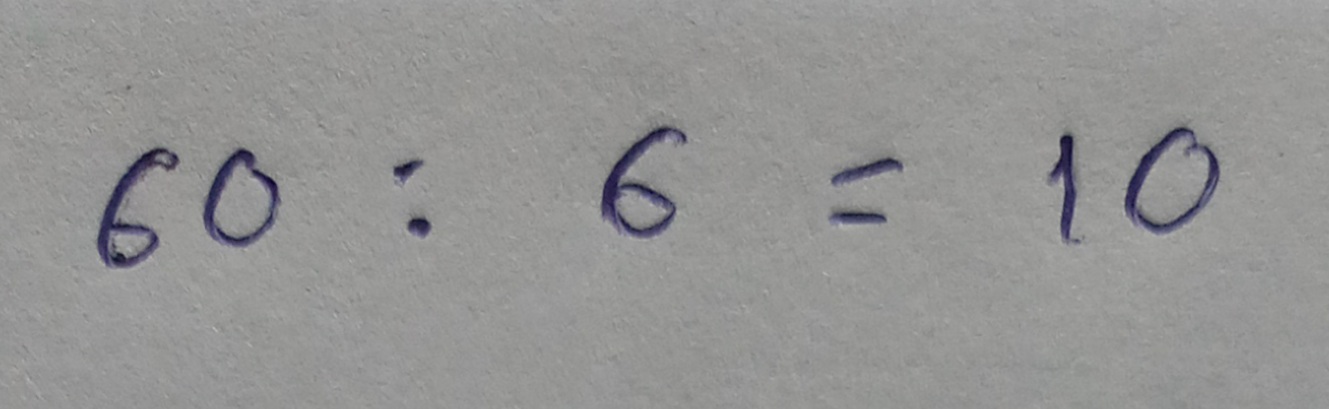 60 : 6 = 10